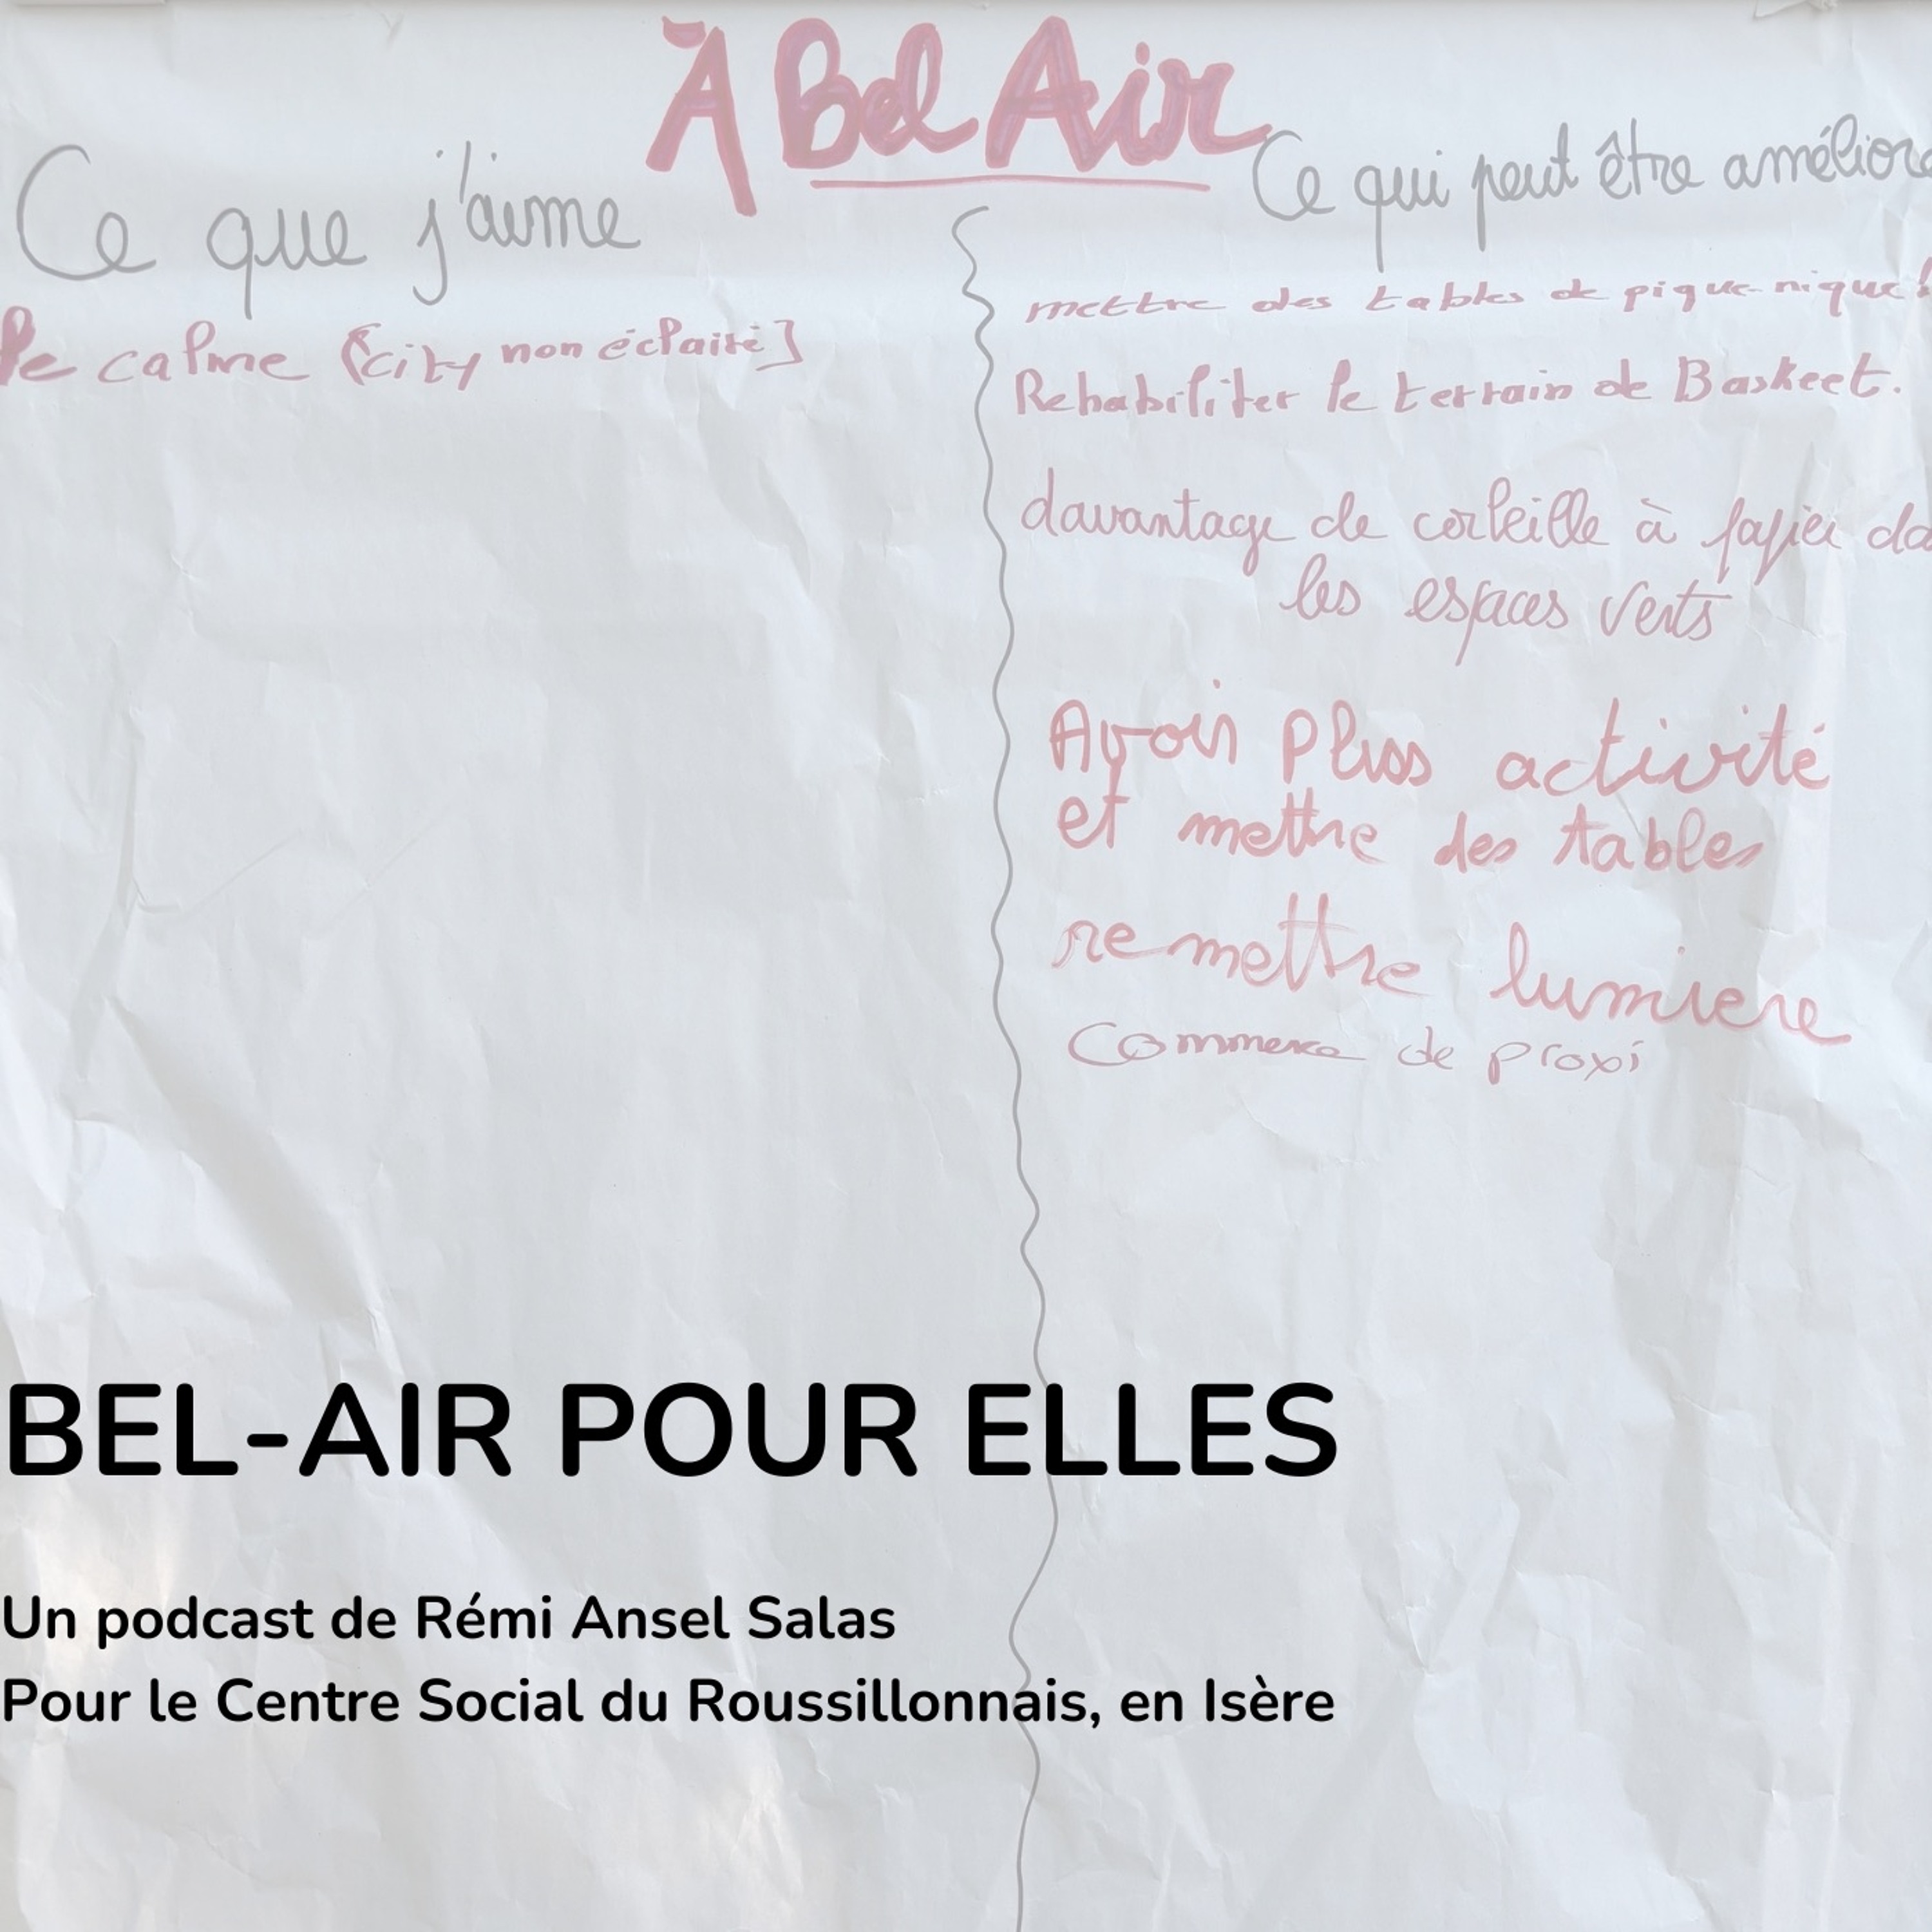 À Bel Air
Ce que j'aime
le calme [city non éclairé]
Ce qui peut être amélioré
mettre des tables de pique-nique!
Rehabiliter le terrain de Baskeet.
davantage de corbeille à papier da
les espaces verts
Avoir pluss activité
et mettre des tables
remettre lumiere
Commerce de proxi
BEL-AIR POUR ELLES
Un podcast de Rémi Ansel Salas
Pour le Centre Social du Roussillonnais, en Isère